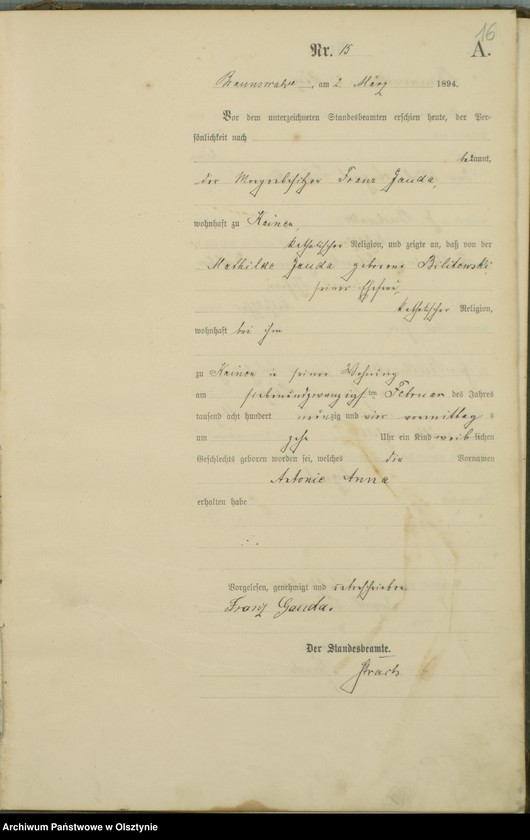 16
Nr. 15
A.
Braunswalde, am 2 März 1894.
Vor dem unterzeichneten Standesbeamten erschien heute, der Per-
sönlichkeit nach
bekannt,
der Franz Gauda,
wohnhaft zu Kainen,
katholischer Religion, und zeigte an, daß von der
Mathilde Gauda geborene Bilitewski,
seiner Ehefrau,
katholischer Religion,
wohnhaft bei ihm
zu Kainen in seiner Wohnung
am siebenundzwanzigsten Februar des Jahres
tausend acht hundert neunzig und vier vormittag s
um zehn Uhr ein Kind weiblichen
Geschlechts geboren worden sei, welches die Vornamen
Antonie Anna
erhalten habe
Vorgelesen, genehmigt und unterschrieben
Franz Gauda.
Der Standesbeamte.
Archiwum Państwowe w Olsztynie